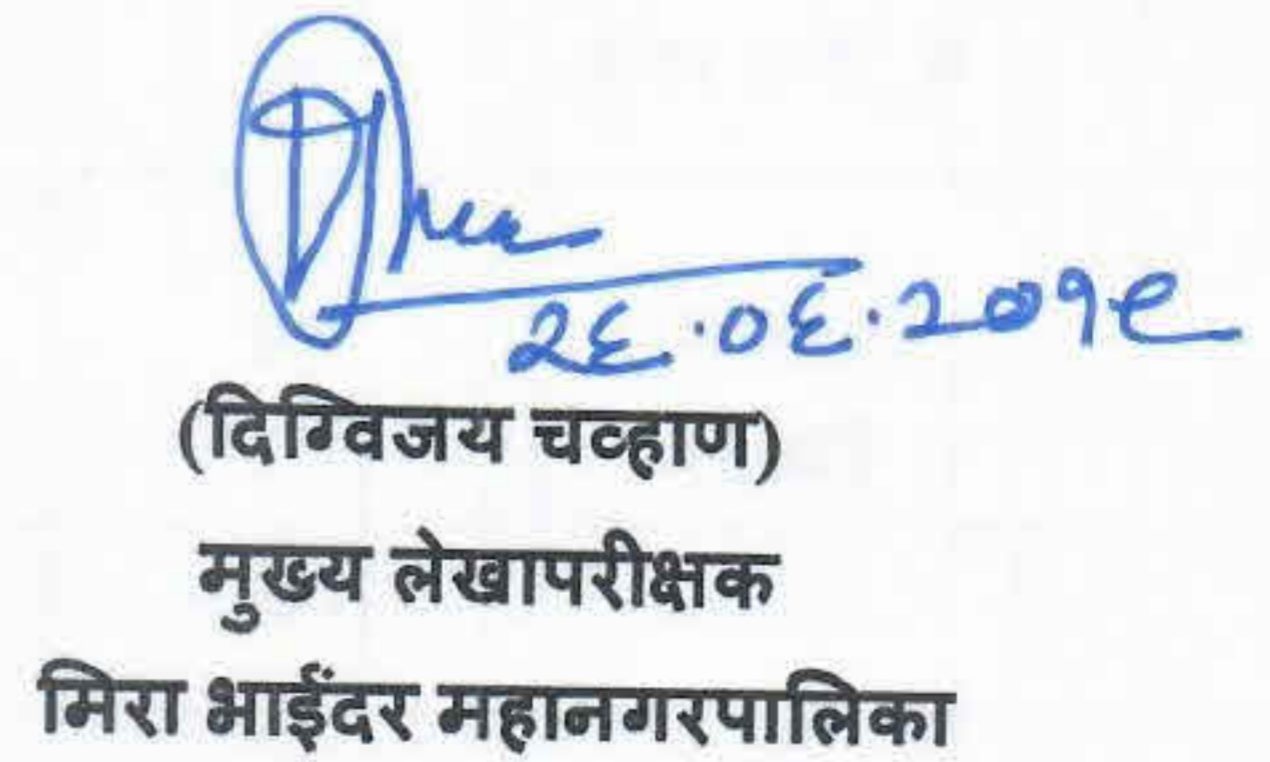 २६.०६.२०१९
(दिग्विजय चव्हाण)
मुख्य लेखापरीक्षक
मिरा भाईंदर महानगरपालिका